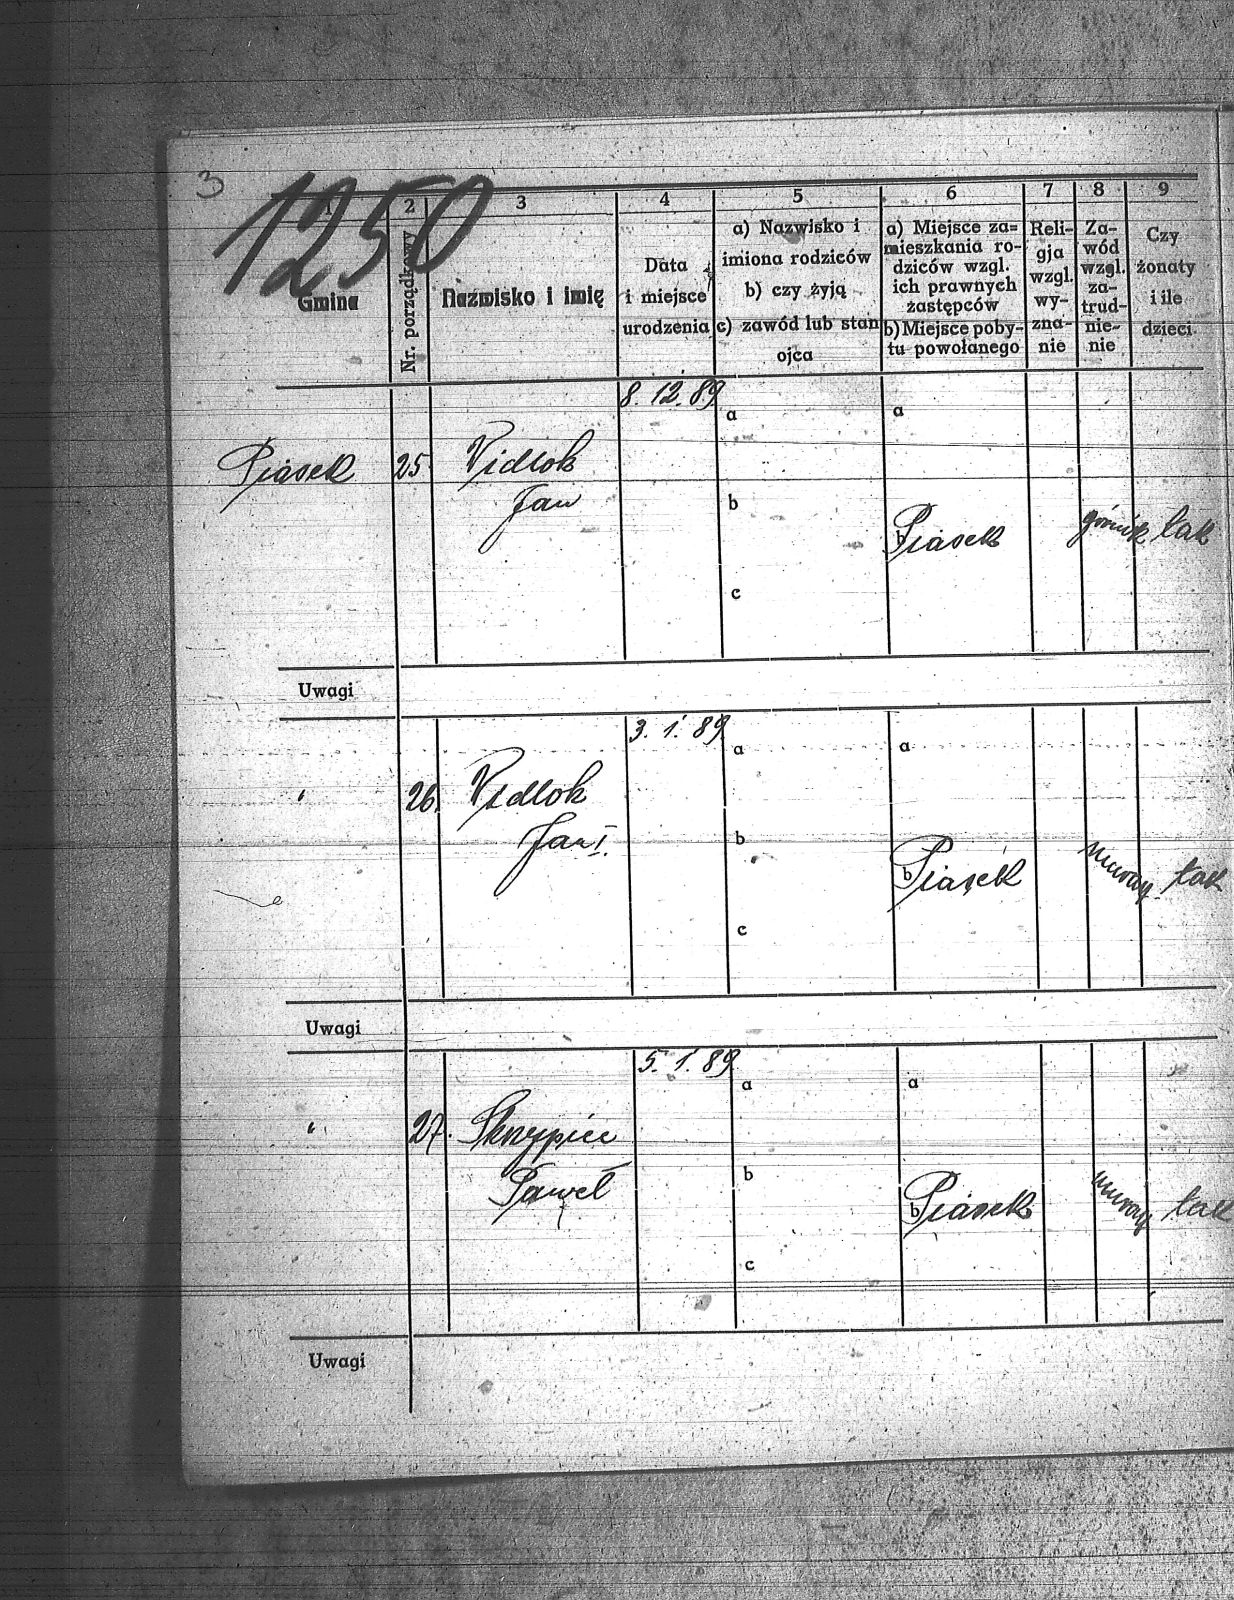 3
1250
1 2 3 4 5 6 7 8 9
Gmina
Nr. porządkowy
Nazwisko i imię
Data
i miejsce
urodzenia
a) Nazwisko i
imiona rodziców
b) czy żyją
c) zawód lub stan
ojca
a) Miejsce za=
mieszkania ro-
dziców wzgl.
ich prawnych
zastępców
b) Miejsce poby-
tu powołanego
Reli-
gja
wzgl.
wy-
zna-
nie
Za-
wód
wzgl.
za-
trud-
nie-
nie
Czy
żonaty
i ile
dzieci
8. 12. 89
a a
Piasek 25 Vidlok
Jan
b
b Piasek górnik tak
c
Uwagi
3. 1. 89
a a
" 26. Vidlok
Jan I.
b
b Piasek muraz tak
c
Uwagi
5. 1. 89
a a
" 27. Skrzypiec
Paweł
b
b Piasek muraz tak
c
Uwagi